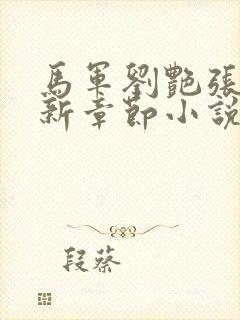 馬軍劉艷張
新章節小說
段蔡